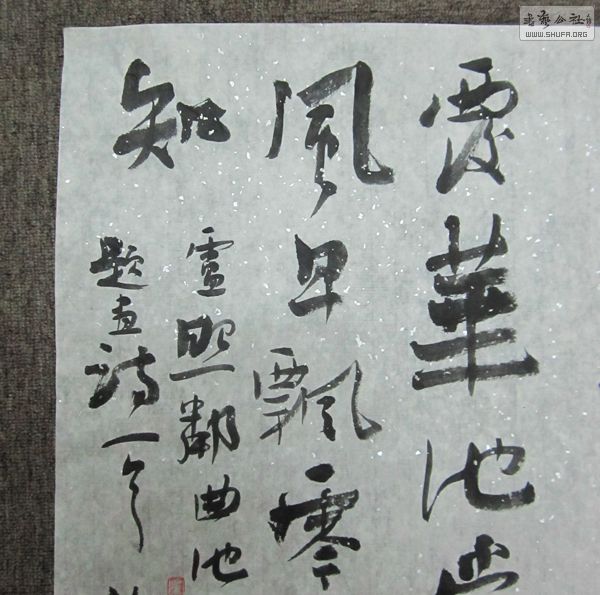 覆華池
風早飄零
知
盧照鄰曲池
題畫詩一首
書藝公社
WWW.SHUFA.ORG